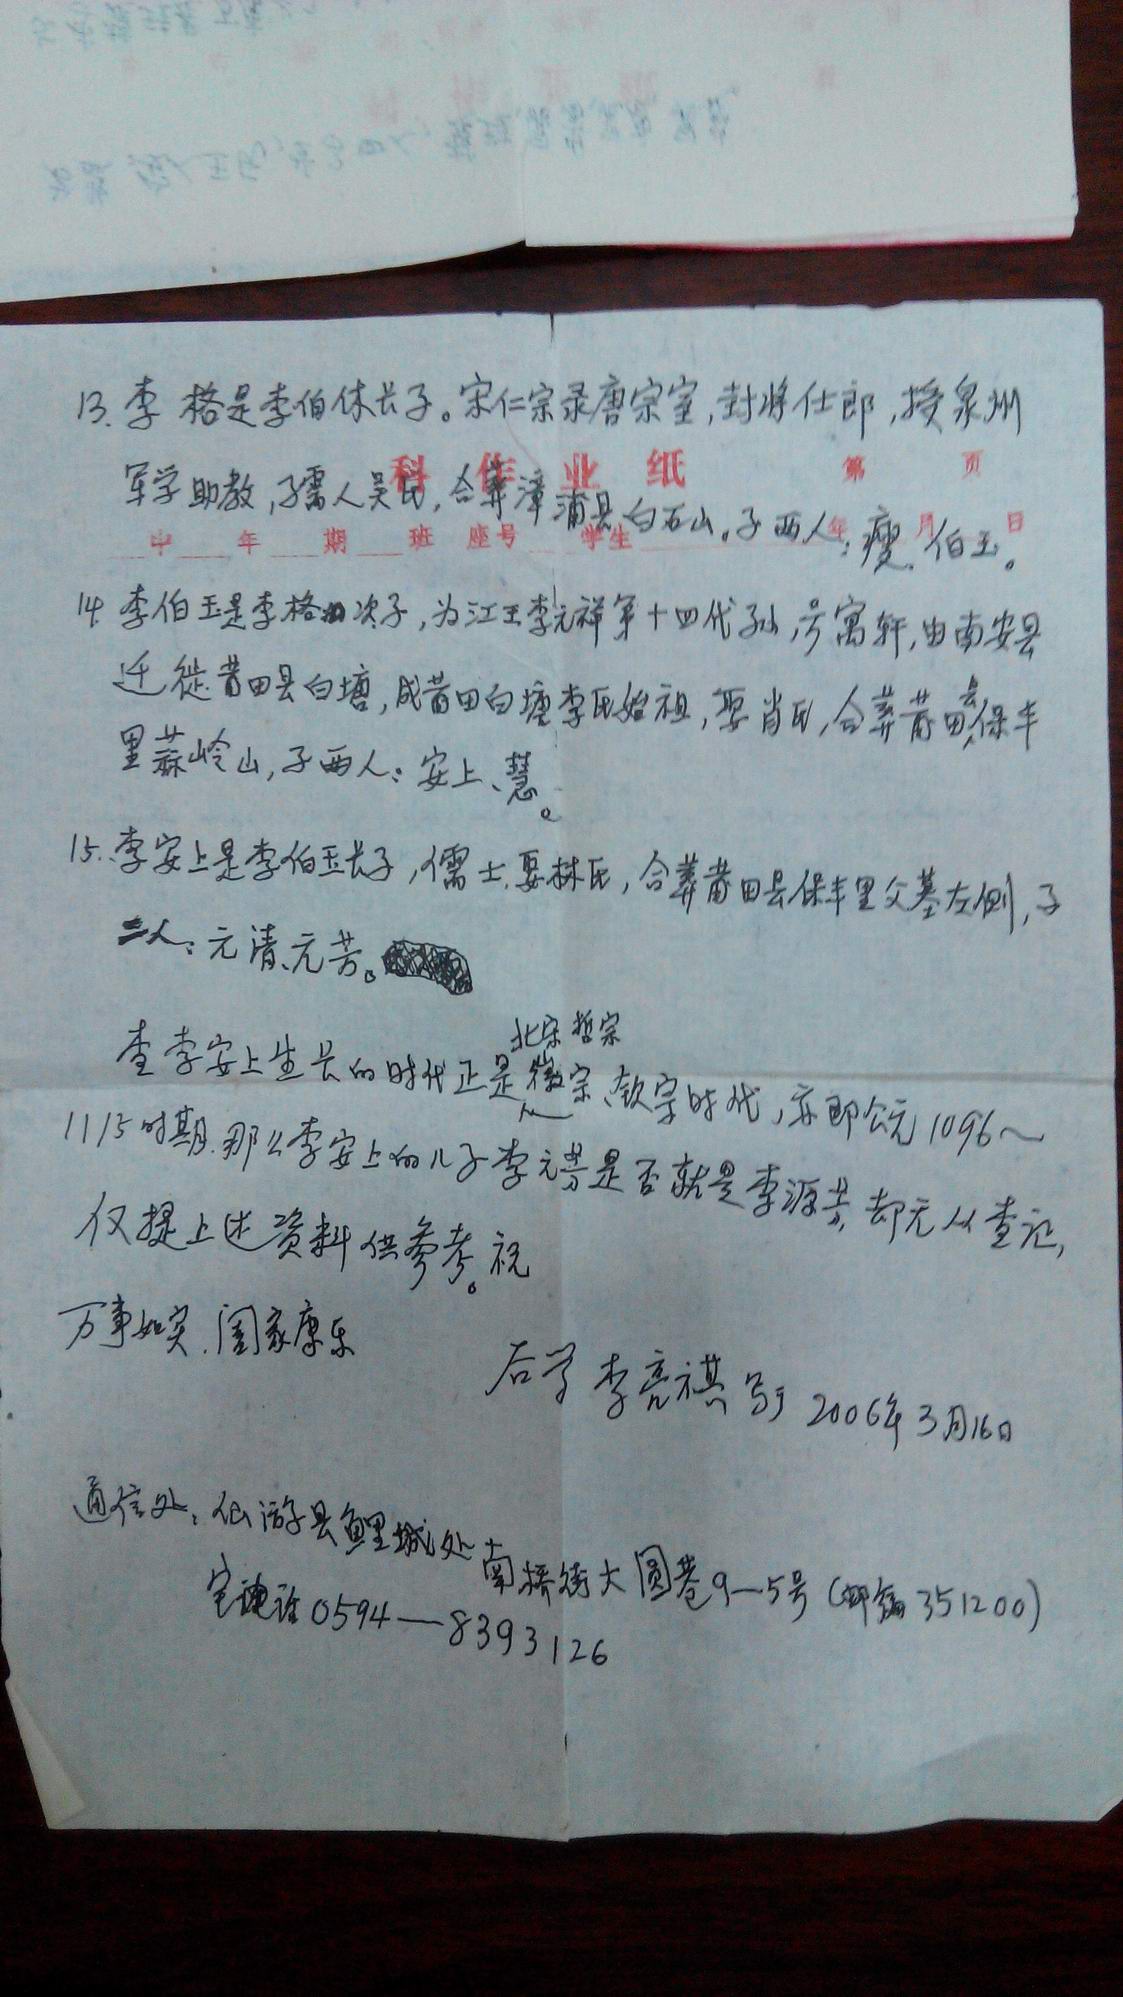 13. 李格是李伯休长子。宋仁宗录唐宗室,封将仕郎,授泉州
科作业纸 第 页
军学助教,孺人吴氏,合葬漳浦县白石山。子两人:瘦、伯玉。
中 年 期 班 座号 学生 年 月 日
14. 李伯玉是李格次子,为江王李元祥第十四代孙,号寓轩,由南安县
迁徙莆田县白塘,成莆田白塘李氏始祖,娶肖氏,合葬莆田县保丰
里蔴岭山,子两人:安上、慧。
15. 李安上是李伯玉长子,儒士,娶林氏,合葬莆田县保丰里父墓左侧,子
二人:元清、元芳。
查李安上生长的时代正是北宋哲宗徽宗、钦宗时代,亦即公元1096~
1115时期.那么李安上的儿子李元芳是否就是李源芳,却无从查记,
仅提上述资料供参考。祝
万事如意.阖家康乐
后学 李亮祺 写于 2006年3月16日
通信处:仙游县鲤城处南桥街大圆巷9—5号(邮编351200)
宅电话0594—8393126